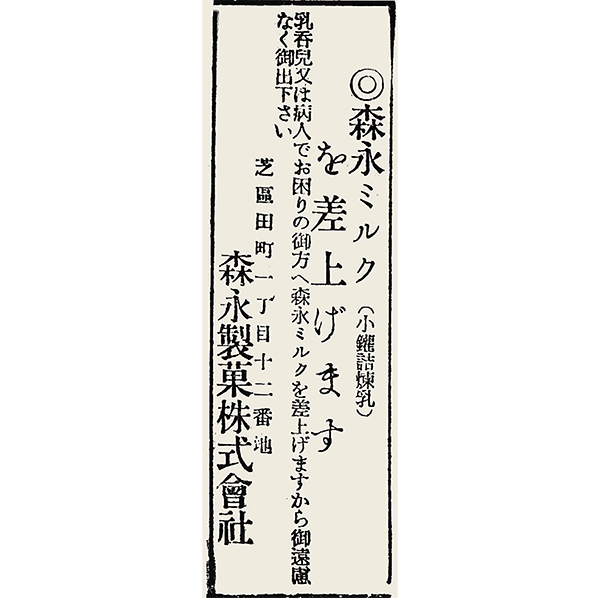 ◎森永ミルク（小鑵詰煉乳）
を差上げます
乳呑兒又は病人でお困りの御方へ森永ミルクを差上げますから御遠慮
なく御出下さい
芝區田町一丁目十二番地
森永製菓株式會社